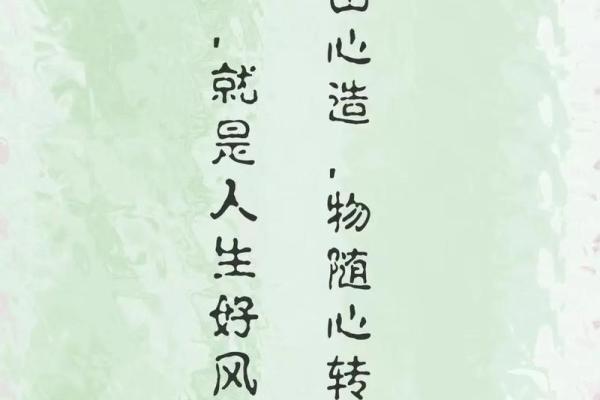 心造，物随心转
，就是人生好风